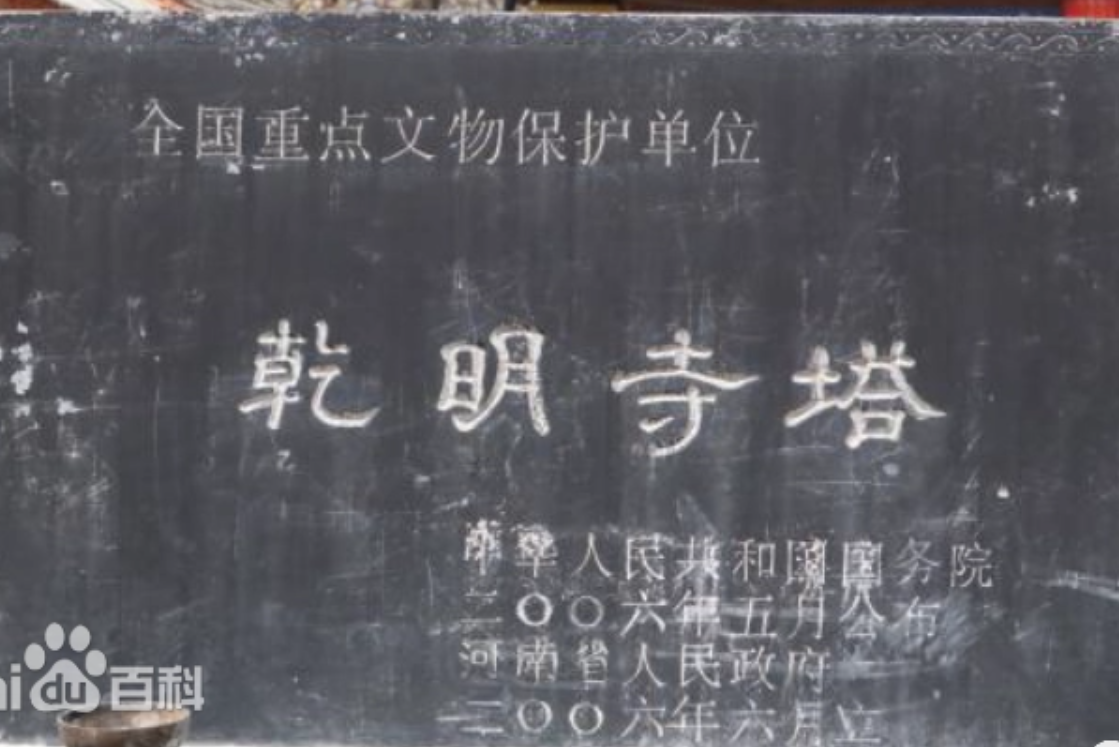 全国重点文物保护单位
乾明寺塔
中华人民共和国国务院
二〇〇六年五月公布
河南省人民政府
二〇〇六年六月立
du百科